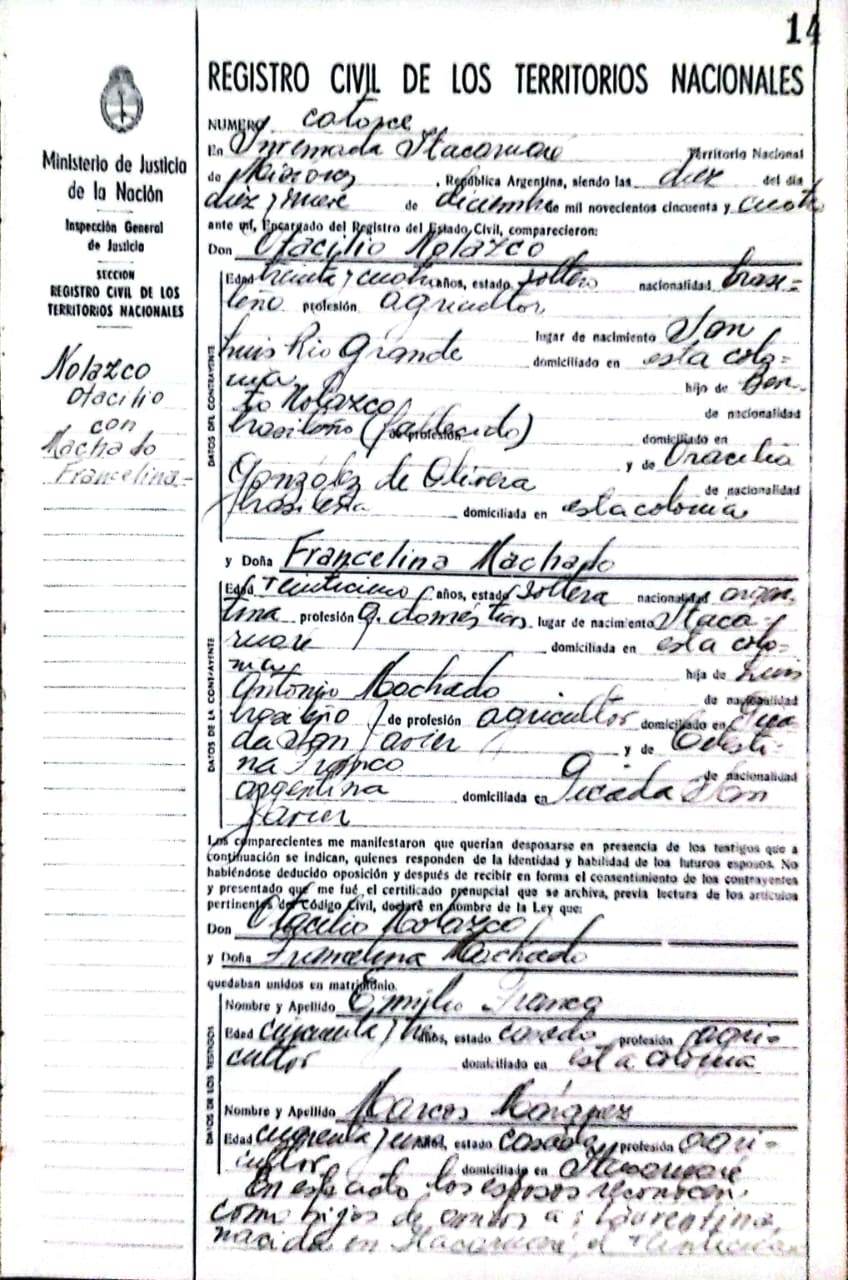 14
REGISTRO CIVIL DE LOS TERRITORIOS NACIONALES
Ministerio de Justicia
de la Nación
Inspección General
de Justicia
SECCION
REGISTRO CIVIL DE LOS
TERRITORIOS NACIONALES
Nolazco
Otacilio
con
Machado
Francelina
NUMERO catorce
En Itacaruaré Territorio Nacional
de Misiones, República Argentina, siendo las diez del día
diez y nueve de diciembre de mil novecientos cincuenta y cuatro
ante mí, Encargado del Registro del Estado Civil, comparecieron:
Don Otacilio Nolazco
DATOS DEL CONTRAYENTE
Edad treinta y cuatro años, estado soltero nacionalidad brasi=
leño profesión agricultor
lugar de nacimiento San
Luis Rio Grande domiciliado en esta colo=
nia hijo de Ben-
to Nolazco de nacionalidad
brasileño (fallecido) de profesión domiciliado en
y de Oracilia
González de Olivera de nacionalidad
brasileña domiciliada en esta colonia
y Doña Francelina Machado
DATOS DE LA CONTRAYENTE
Edad veinticinco años, estado soltera nacionalidad argen-
tina profesión q. domésticos lugar de nacimiento Itaca-
ruaré domiciliada en esta colo=
nia hija de Luis
Antonio Machado de nacionalidad
brasileño de profesión agricultor domiciliado en Pica
da San Javier y de Celesti-
na Franco de nacionalidad
argentina domiciliada en Picada San
Javier
Los comparecientes me manifestaron que querían desposarse en presencia de los testigos que a
continuación se indican, quienes responden de la identidad y habilidad de los futuros esposos. No
habiéndose deducido oposición y después de recibir en forma el consentimiento de los contrayentes
y presentado que me fué el certificado prenupcial que se archiva, previa lectura de los artículos
pertinentes del Código Civil, declaré en nombre de la Ley que:
Don Otacilio Nolazco
y Doña Francelina Machado
quedaban unidos en matrimonio.
DATOS DE LOS TESTIGOS
Nombre y Apellido Emilio Franco
Edad cincuenta y tres años, estado casado profesión agri=
cultor domiciliado en esta colonia
Nombre y Apellido Marcos Márquez
Edad cuarenta y un años, estado casado profesión agri-
cultor domiciliado en Itacaruaré
En este acto los esposos reconocen
como hijos de ambos a: Laurentina,
nacida en Itacaruaré, el